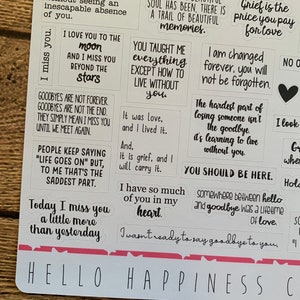 without seeing an
inescapable absence
of you.
SOUL HAS BEEN, THERE IS
A TRAIL OF BEAUTIFUL
memories.
Grief is the
price you pay
for love.
I miss you.
I LOVE YOU TO THE
moon
AND I MISS YOU
BEYOND THE
stars
YOU TAUGHT ME
everything
EXCEPT HOW TO
LIVE WITHOUT
you.
I am changed
forever, you will
not be forgotten.
NO
GOODBYES ARE NOT FOREVER.
GOODBYES ARE NOT THE END.
THEY SIMPLY MEAN I MISS YOU
UNTIL WE MEET AGAIN.
It was love,
and I lived it.
And,
It is grief, and I
will carry it.
The hardest part of
losing someone isn't
the goodbye,
it's learning to live
without you.
I look
PEOPLE KEEP SAYING
"LIFE GOES ON" BUT,
TO ME THAT'S THE
SADDEST PART.
YOU SHOULD BE HERE.
Today I miss you
a little more
than yesterday
I have so much
of you in my
heart.
Somewhere between hello
and goodbye was a lifetime
of love.
I wasn't ready to say goodbye to you.
HELLO HAPPINESS C